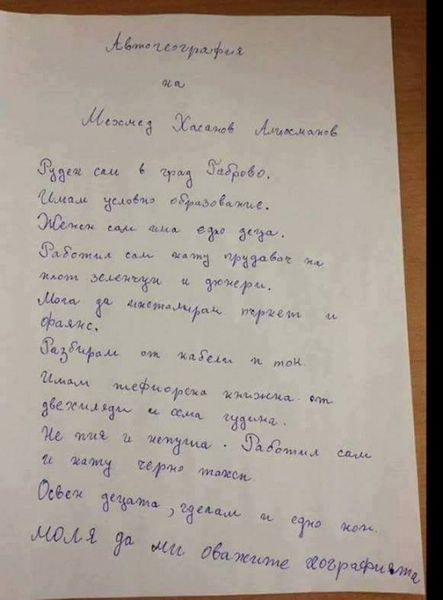 Автогеография
на
Мехмед Хасанов Алиосманов
Руден сам в град Габрово.
Имам условно образование.
Женен сам има едно деца.
Работил сам кату прудавач на
плот зеленчуци и дюнери.
Мога да инсталирам пъркет и
фаянс.
Разбирам от кабели и ток.
Имам шефиорска книжка от
двехиляди и осма гудина.
Не пия и непуша. Работил сам
и кату черно такси.
Освен децата, гделам и едно кон.
МОЛЯ да ми оважите географията